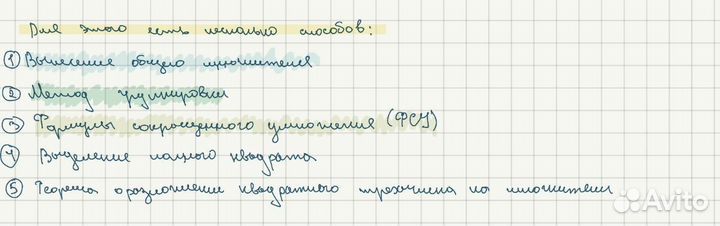 Для этого есть несколько способов:
① Вынесение общего множителя
② Метод группировки
③ Формулы сокращенного умножения (ФСУ)
④ Выделение полного квадрата
⑤ Теорема о разложении квадратного трехчлена на множители
Avito